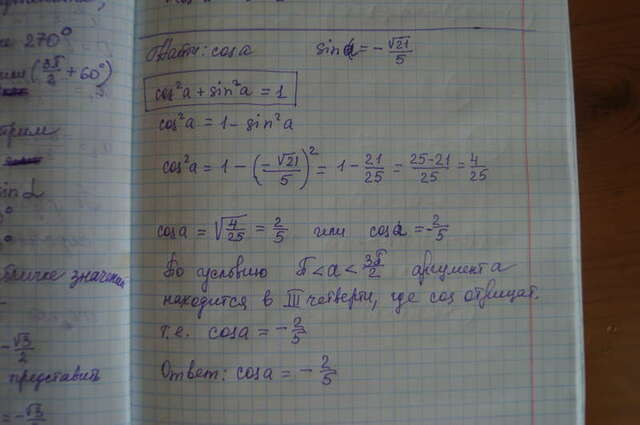 270°
(3π/2 + 60°)
sin α
значений
-√3/2
представить
= -√3
Найти: cos a sin a = -√21/5
cos²a + sin²a = 1
cos²a = 1 - sin²a
cos²a = 1 - (-√21/5)² = 1 - 21/25 = 25-21/25 = 4/25
cos a = √4/25 = 2/5 или cos a = -2/5
По условию π < a < 3π/2 аргумент a
находится в III четверти, где cos отрицат.
т.е. cos a = -2/5
Ответ: cos a = -2/5